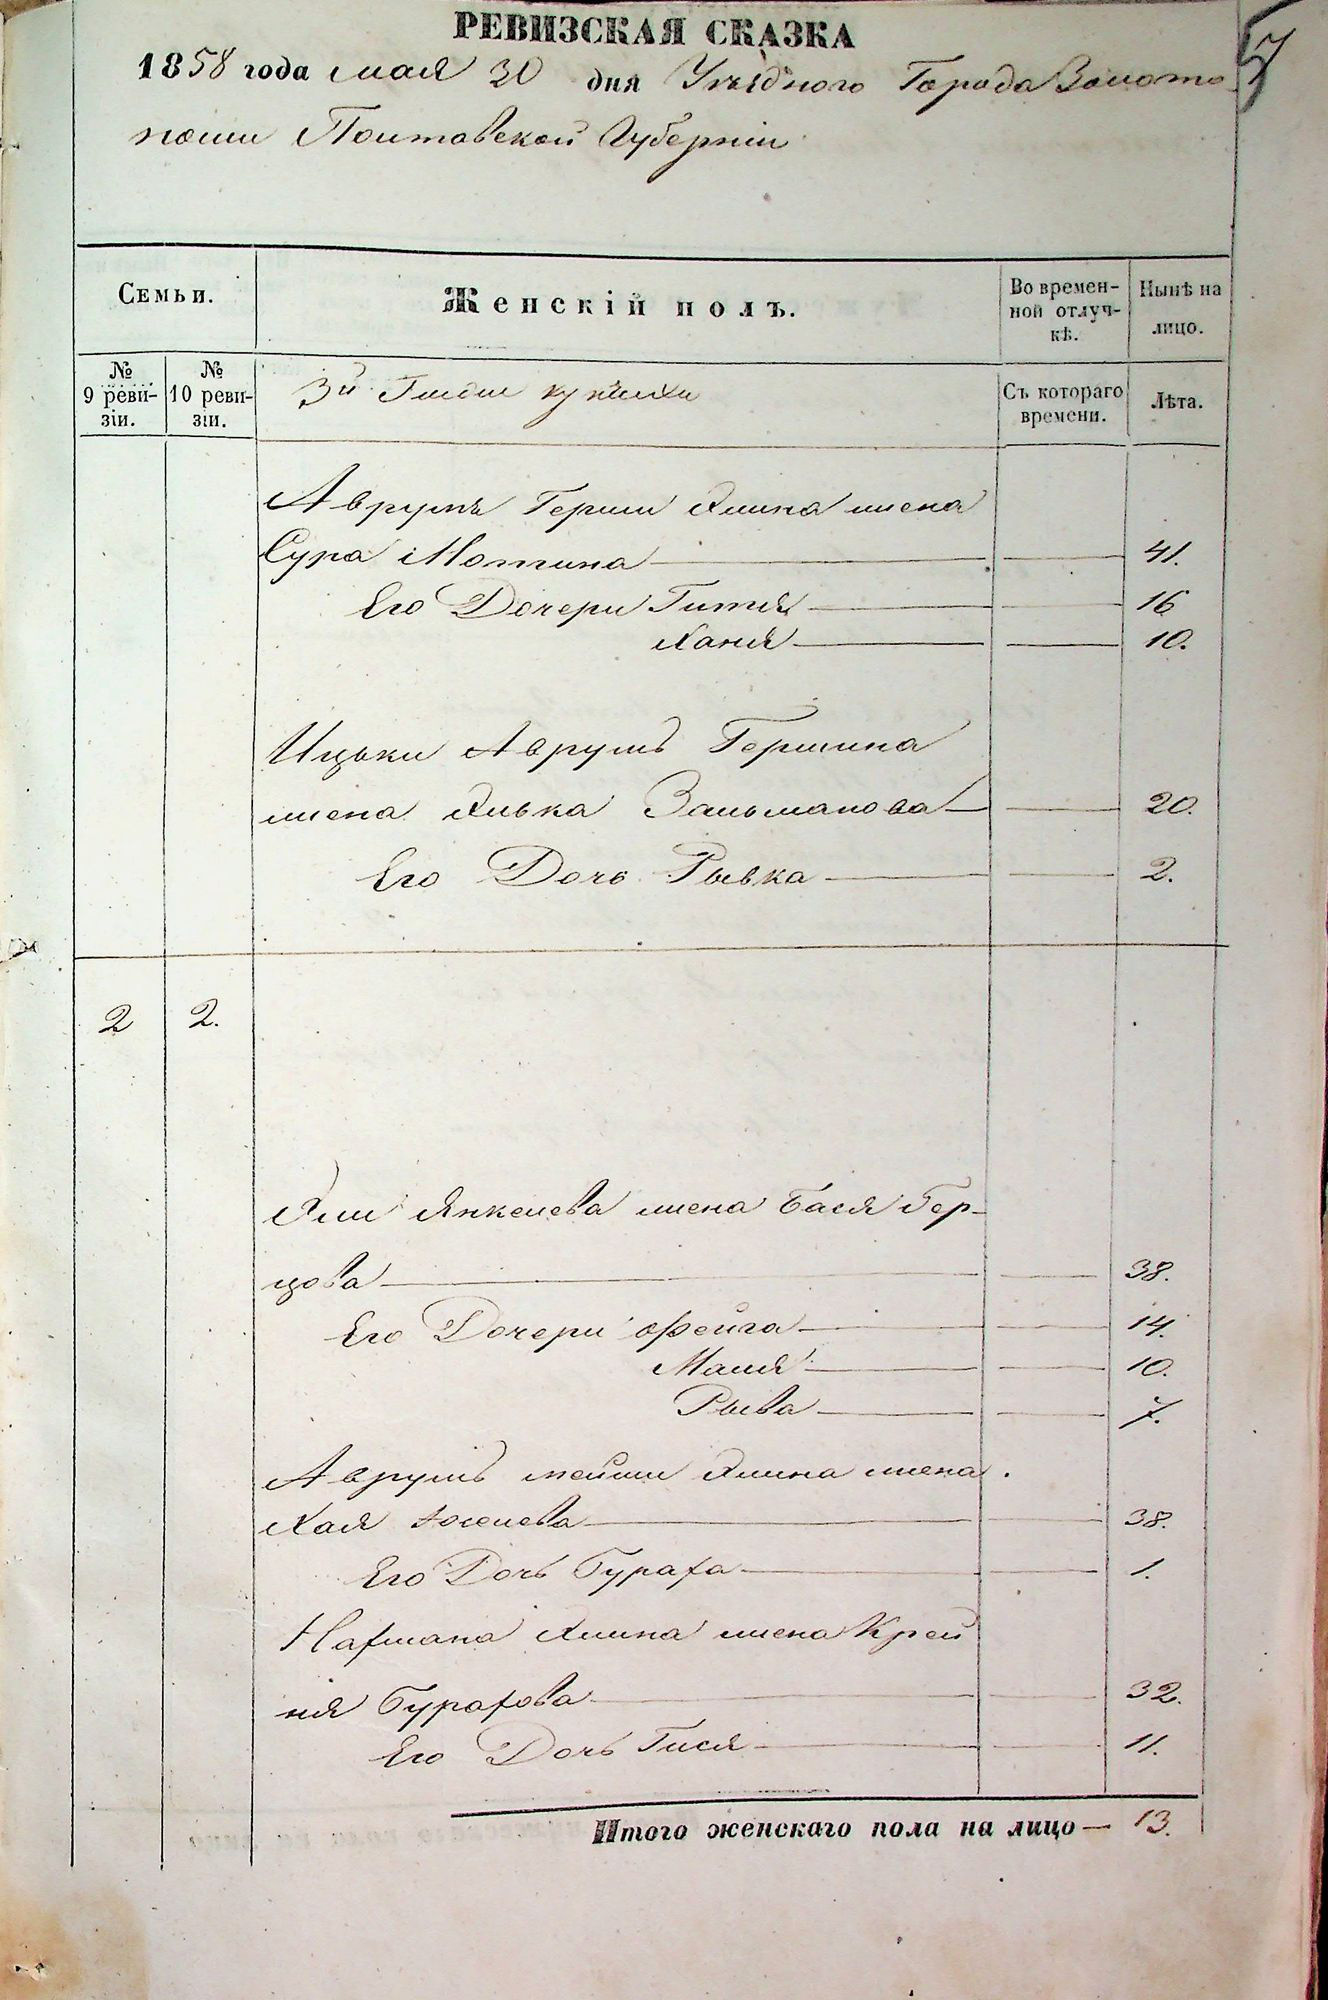 РЕВИЗСКАЯ СКАЗКА
1858 года мая 30 дня Уѣзднаго Города Золото
ноши Полтавской Губерніи
Семьи.
Женскій полъ.
Во времен-
ной отлуч-
кѣ.
Нынѣ на
лицо.
№
9 реви-
зіи.
№
10 реви-
зіи.
3й Гильдіи купчихи
Съ котораго
времени.
Лѣта.
Аврумъ Герши Хаима жена
Сура Мотина 41.
Его Дочери Гитля 16
Ханя 10.
Ицьки Аврумъ Гершина
жена Зальманова 20.
Его Дочь Рывка 2.
2 2.
Янкелева жена Бася Бер-
цова 38.
Его Дочери Фейга 14.
Маля 10.
Рыва 7.
Аврумъ жена
Хая 38.
Его Дочь Бураха 1.
Нахмана жена Крей
ня Бурахова 32.
Его Дочь Гися 11.
Итого женскаго пола на лицо — 13.